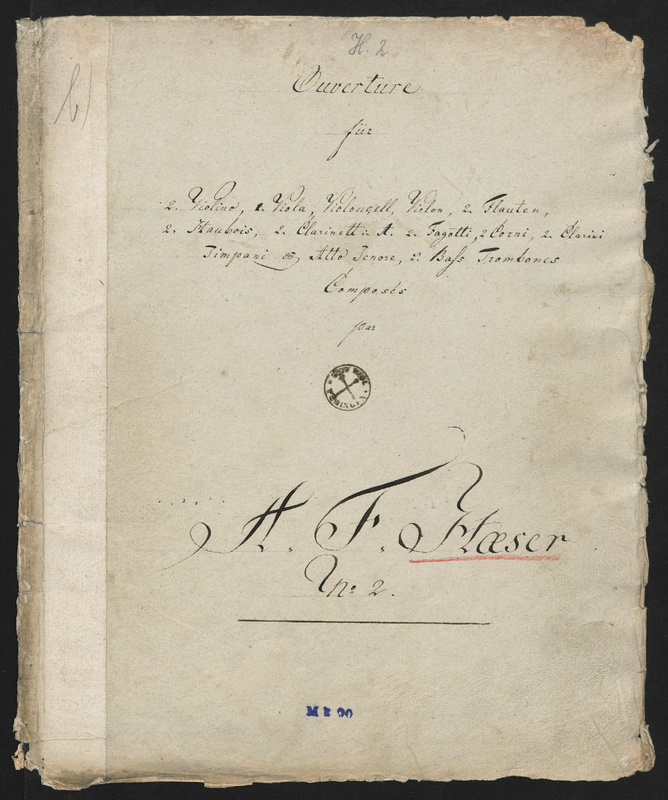 H. 2
b)
Ouverture
für
2. Violino, 1. Viola, Violonzell, Violon, 2. Flauten,
2. Haubois, 2. Clarinetti: A. 2. Fagotti, 2 Corni, 2. Clarini
Timpani et, Alto Tenore, 2. Bass Trombones
Composés
par
A. F. Hæser
No 2.
M I 90